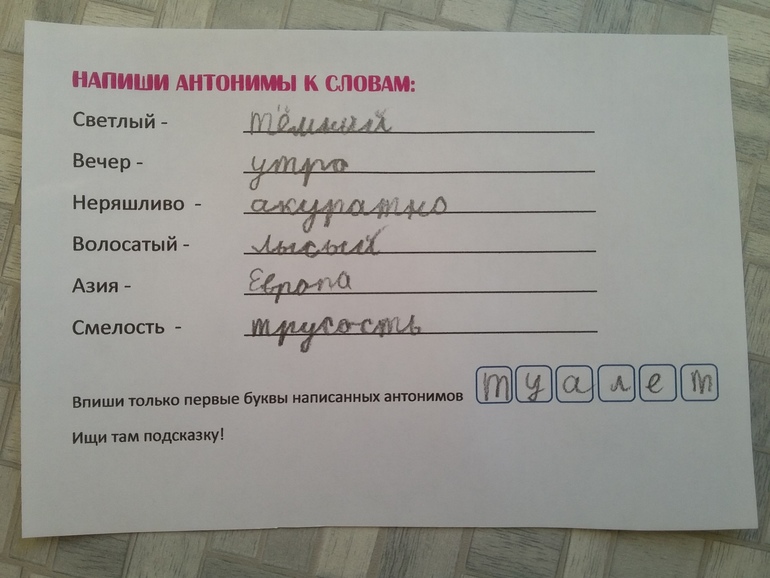 НАПИШИ АНТОНИМЫ К СЛОВАМ:
Светлый - тёмный
Вечер - утро
Неряшливо - акуратно
Волосатый - лысый
Азия - Европа
Смелость - трусость
Впиши только первые буквы написанных антонимов т у а л е т
Ищи там подсказку!